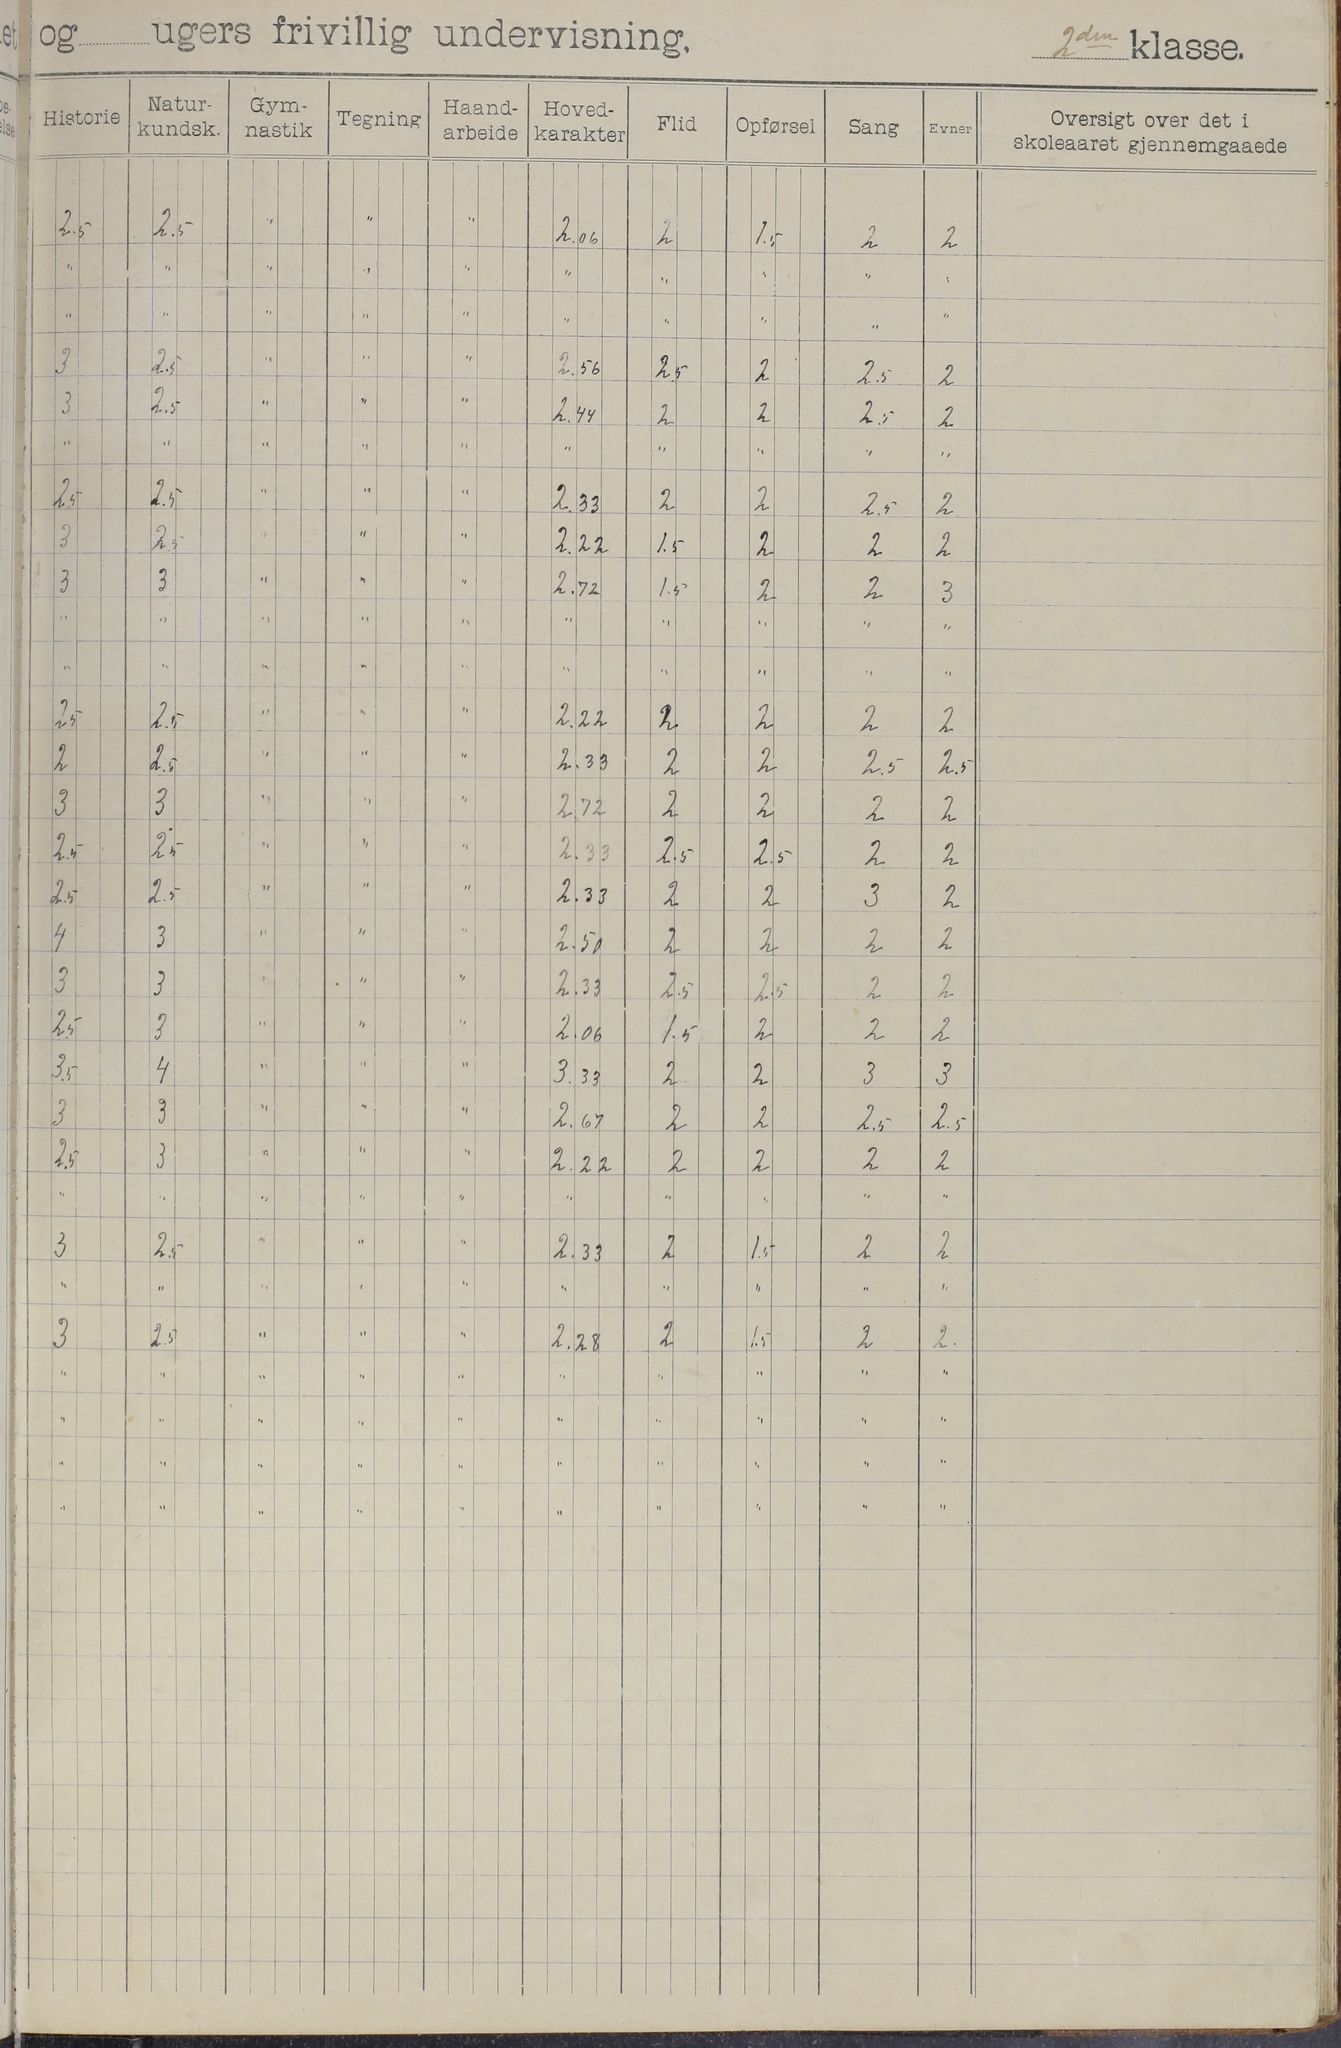 og ugers frivillig undervisning. 2den klasse.
Historie Natur-kundsk. Gym-nastik Tegning Haand-arbeide Hoved-karakter Flid Opførsel Sang Evner Oversigt over det i skoleaaret gjennemgaaede
2.5 2.5 " " " 2.06 2 1.5 2 2
" " " " " " " " " "
" " " " " " " " " "
3 2.5 " " " 2.56 2.5 2 2.5 2
3 2.5 " " " 2.44 2 2 2.5 2
" " " " " " " " " "
2.5 2.5 " " " 2.33 2 2 2.5 2
3 2.5 " " " 2.22 1.5 2 2 2
3 3 " " " 2.72 1.5 2 2 3
" " " " " " " " " "
" " " " " " " " " "
2.5 2.5 " " " 2.22 2 2 2 2
2 2.5 " " " 2.33 2 2 2.5 2.5
3 3 " " " 2.72 2 2 2 2
2.5 2.5 " " " 2.33 2.5 2.5 2 2
2.5 2.5 " " " 2.33 2 2 3 2
4 3 " " " 2.50 2 2 2 2
3 3 " " " 2.33 2.5 2.5 2 2
2.5 3 " " " 2.06 1.5 2 2 2
3.5 4 " " " 3.33 2 2 3 3
3 3 " " " 2.67 2 2 2.5 2.5
2.5 3 " " " 2.22 2 2 2 2
" " " " " " " " " "
3 2.5 " " " 2.33 2 1.5 2 2
" " " " " " " " " "
3 2.5 " " " 2.28 2 1.5 2 2.
" " " " " " " " " "
" " " " " " " " " "
" " " " " " " " " "
" " " " " " " " " "